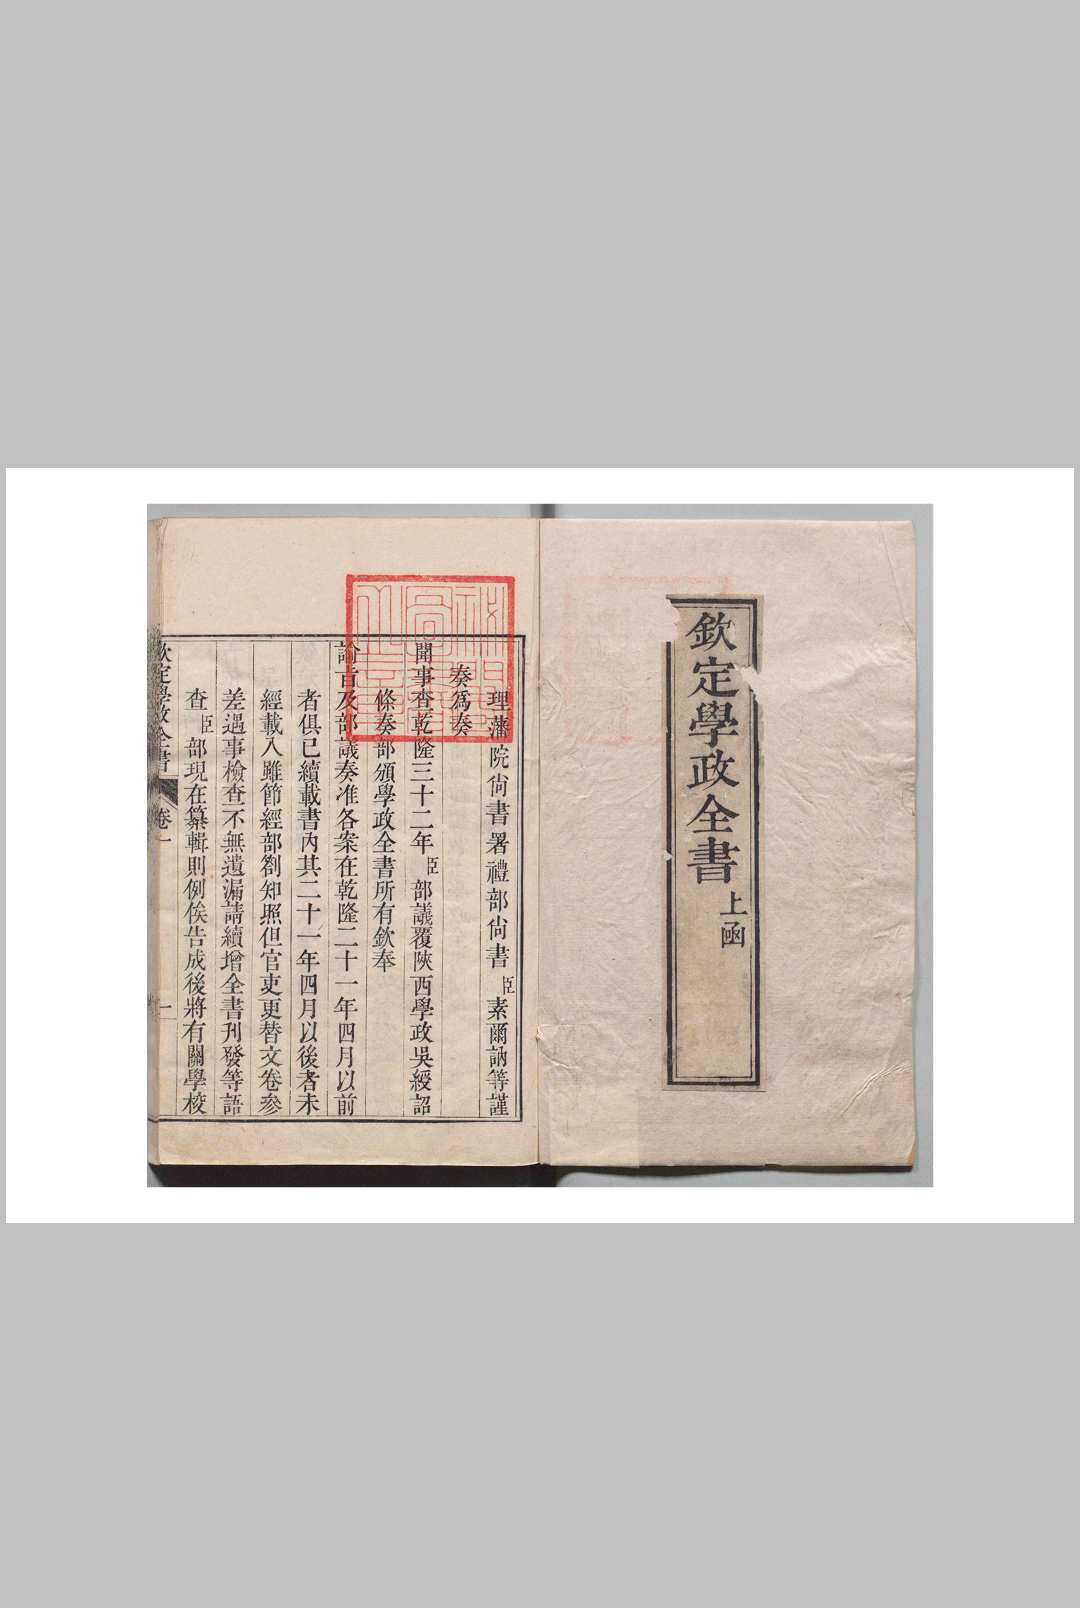 欽定學政全書上函
理藩院尚書署禮部尚書臣素爾訥等謹
奏爲奏
聞事查乾隆三十二年臣部議覆陝西學政吳綬詔
條奏部頒學政全書所有欽奉
諭旨及部議奏准各案在乾隆二十一年四月以前
者俱已續載書內其二十一年四月以後者未
經載入雖節經部劄知照但官吏更替文卷參
差遇事檢查不無遺漏請續增全書刊發等語
查臣部現在纂輯則例俟告成後將有關學校
欽定學政全書 卷一 一